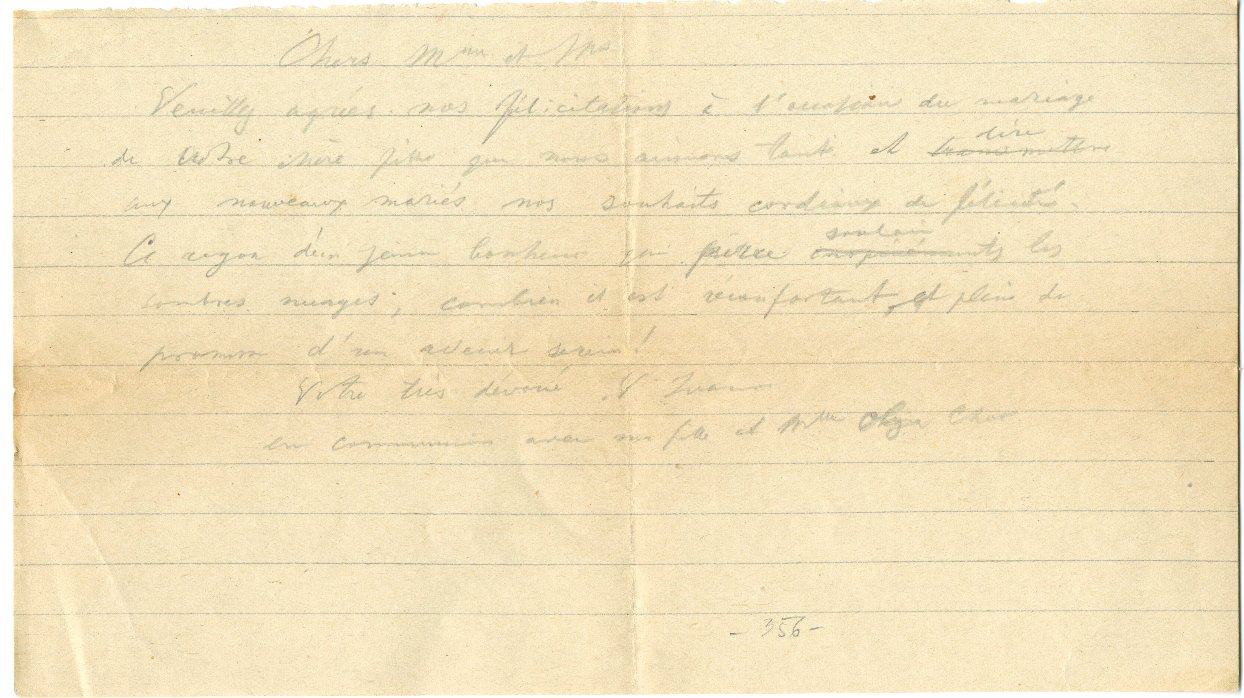 Chers Mme et Mrs
Veuillez agréer nos félicitations à l'occasion du mariage
de votre chère fille que nous aimons tant et transmettre dire
aux nouveaux mariés nos souhaits cordiaux de félicité.
Ce rayon d'un jeune bonheur qui perce soudain les
sombres nuages, combien il est réconfortant et plein de
promesse d'un avenir serein!
Votre très dévoué V.
en communion avec ma fille et Mlle Olga
- 356 -